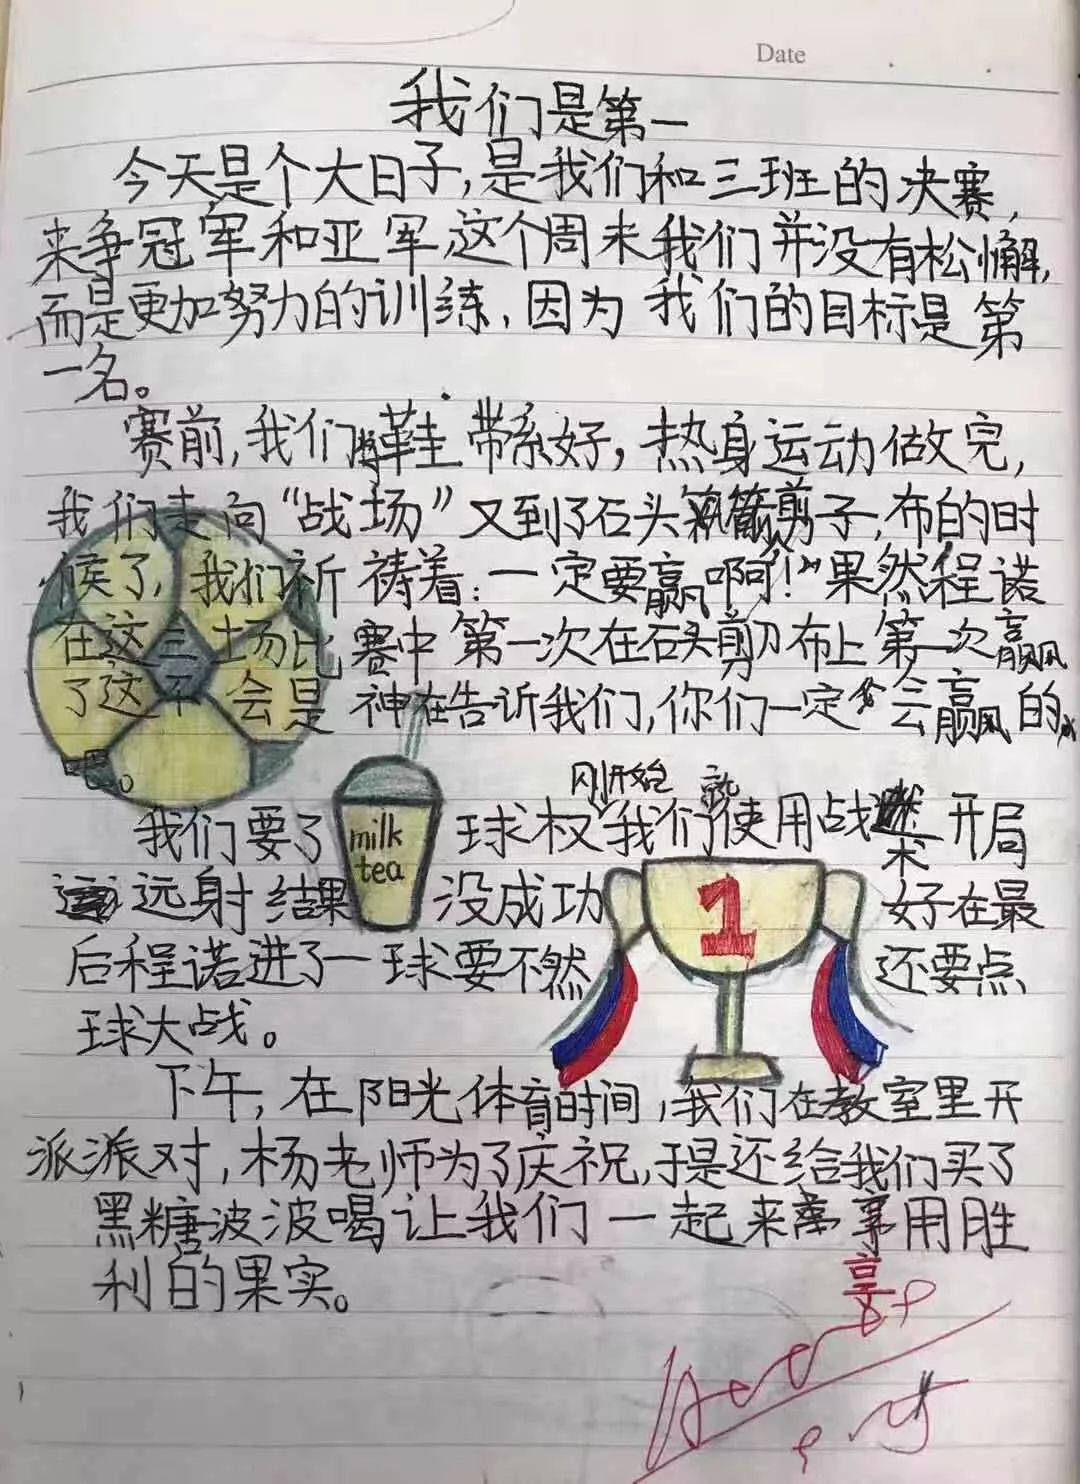 Date
我们是第一
今天是个大日子,是我们和三班的决赛,
来争冠军和亚军这个周末我们并没有松懈,
而是更加努力的训练,因为我们的目标是第
一名。
赛前,我们鞋带系好,热身运动做完,
我们走向“战场”又到了石头剪子,布的时
候了,我们祈祷着:一定要赢啊!”果然程诺
在这三场比赛中第一次在石头剪刀布上第一次赢
了这不会是神在告诉我们,你们一定会赢的
吧。
刚开始 就
我们要了 milk 球权我们使用战 开局
tea 术
远射结果没成功 1 好在最
后程诺进了一球要不然还要点
球大战。
下午,在阳光体育时间,我们在教室里开
派派对,杨老师为了庆祝,于是还给我们买了
黑糖波波喝让我们一起来享用胜
利的果实。
享